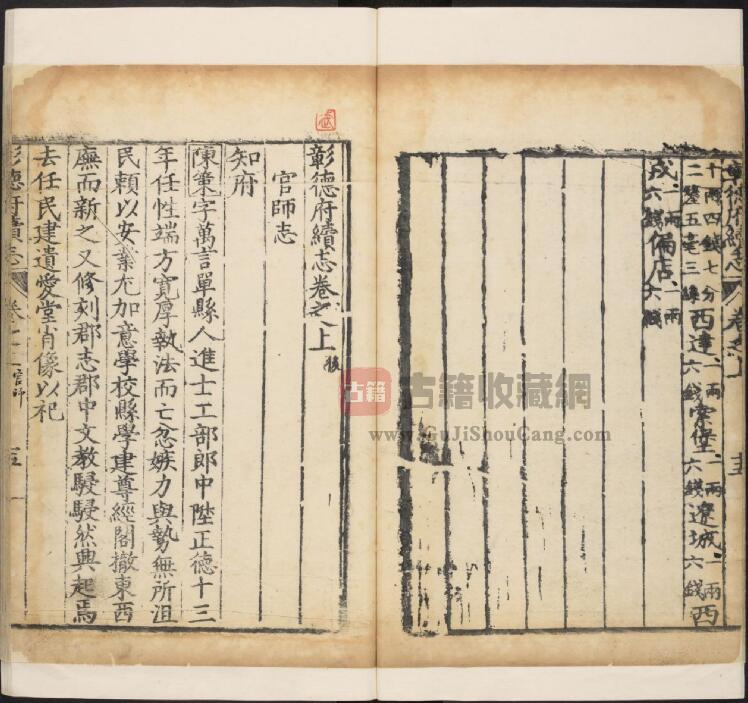 彰德府續志 卷之上
十兩四錢七分二釐五毫三絲西達一兩六錢寨堡一兩六錢遼城一兩六錢西
戌一兩六錢偏店一兩六錢
彰德府續志卷之上後
官師志
知府
陳策字萬言單縣人進士工部郎中陞正德十三
年任性端方寬厚執法而亡忿嫉力與勢無所沮
民賴以安業尤加意學校縣學建尊經閣撤東西
廡而新之又修刻郡志郡中文教駸駸然興起焉
去任民建遺愛堂肖像以祀
彰德府續志 卷之上 官師
古籍
古籍收藏網
www.GuJiShouCang.com